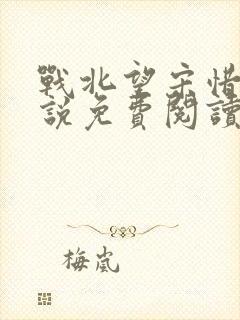 戰北望宋惜
說免費閱讀
梅嵐